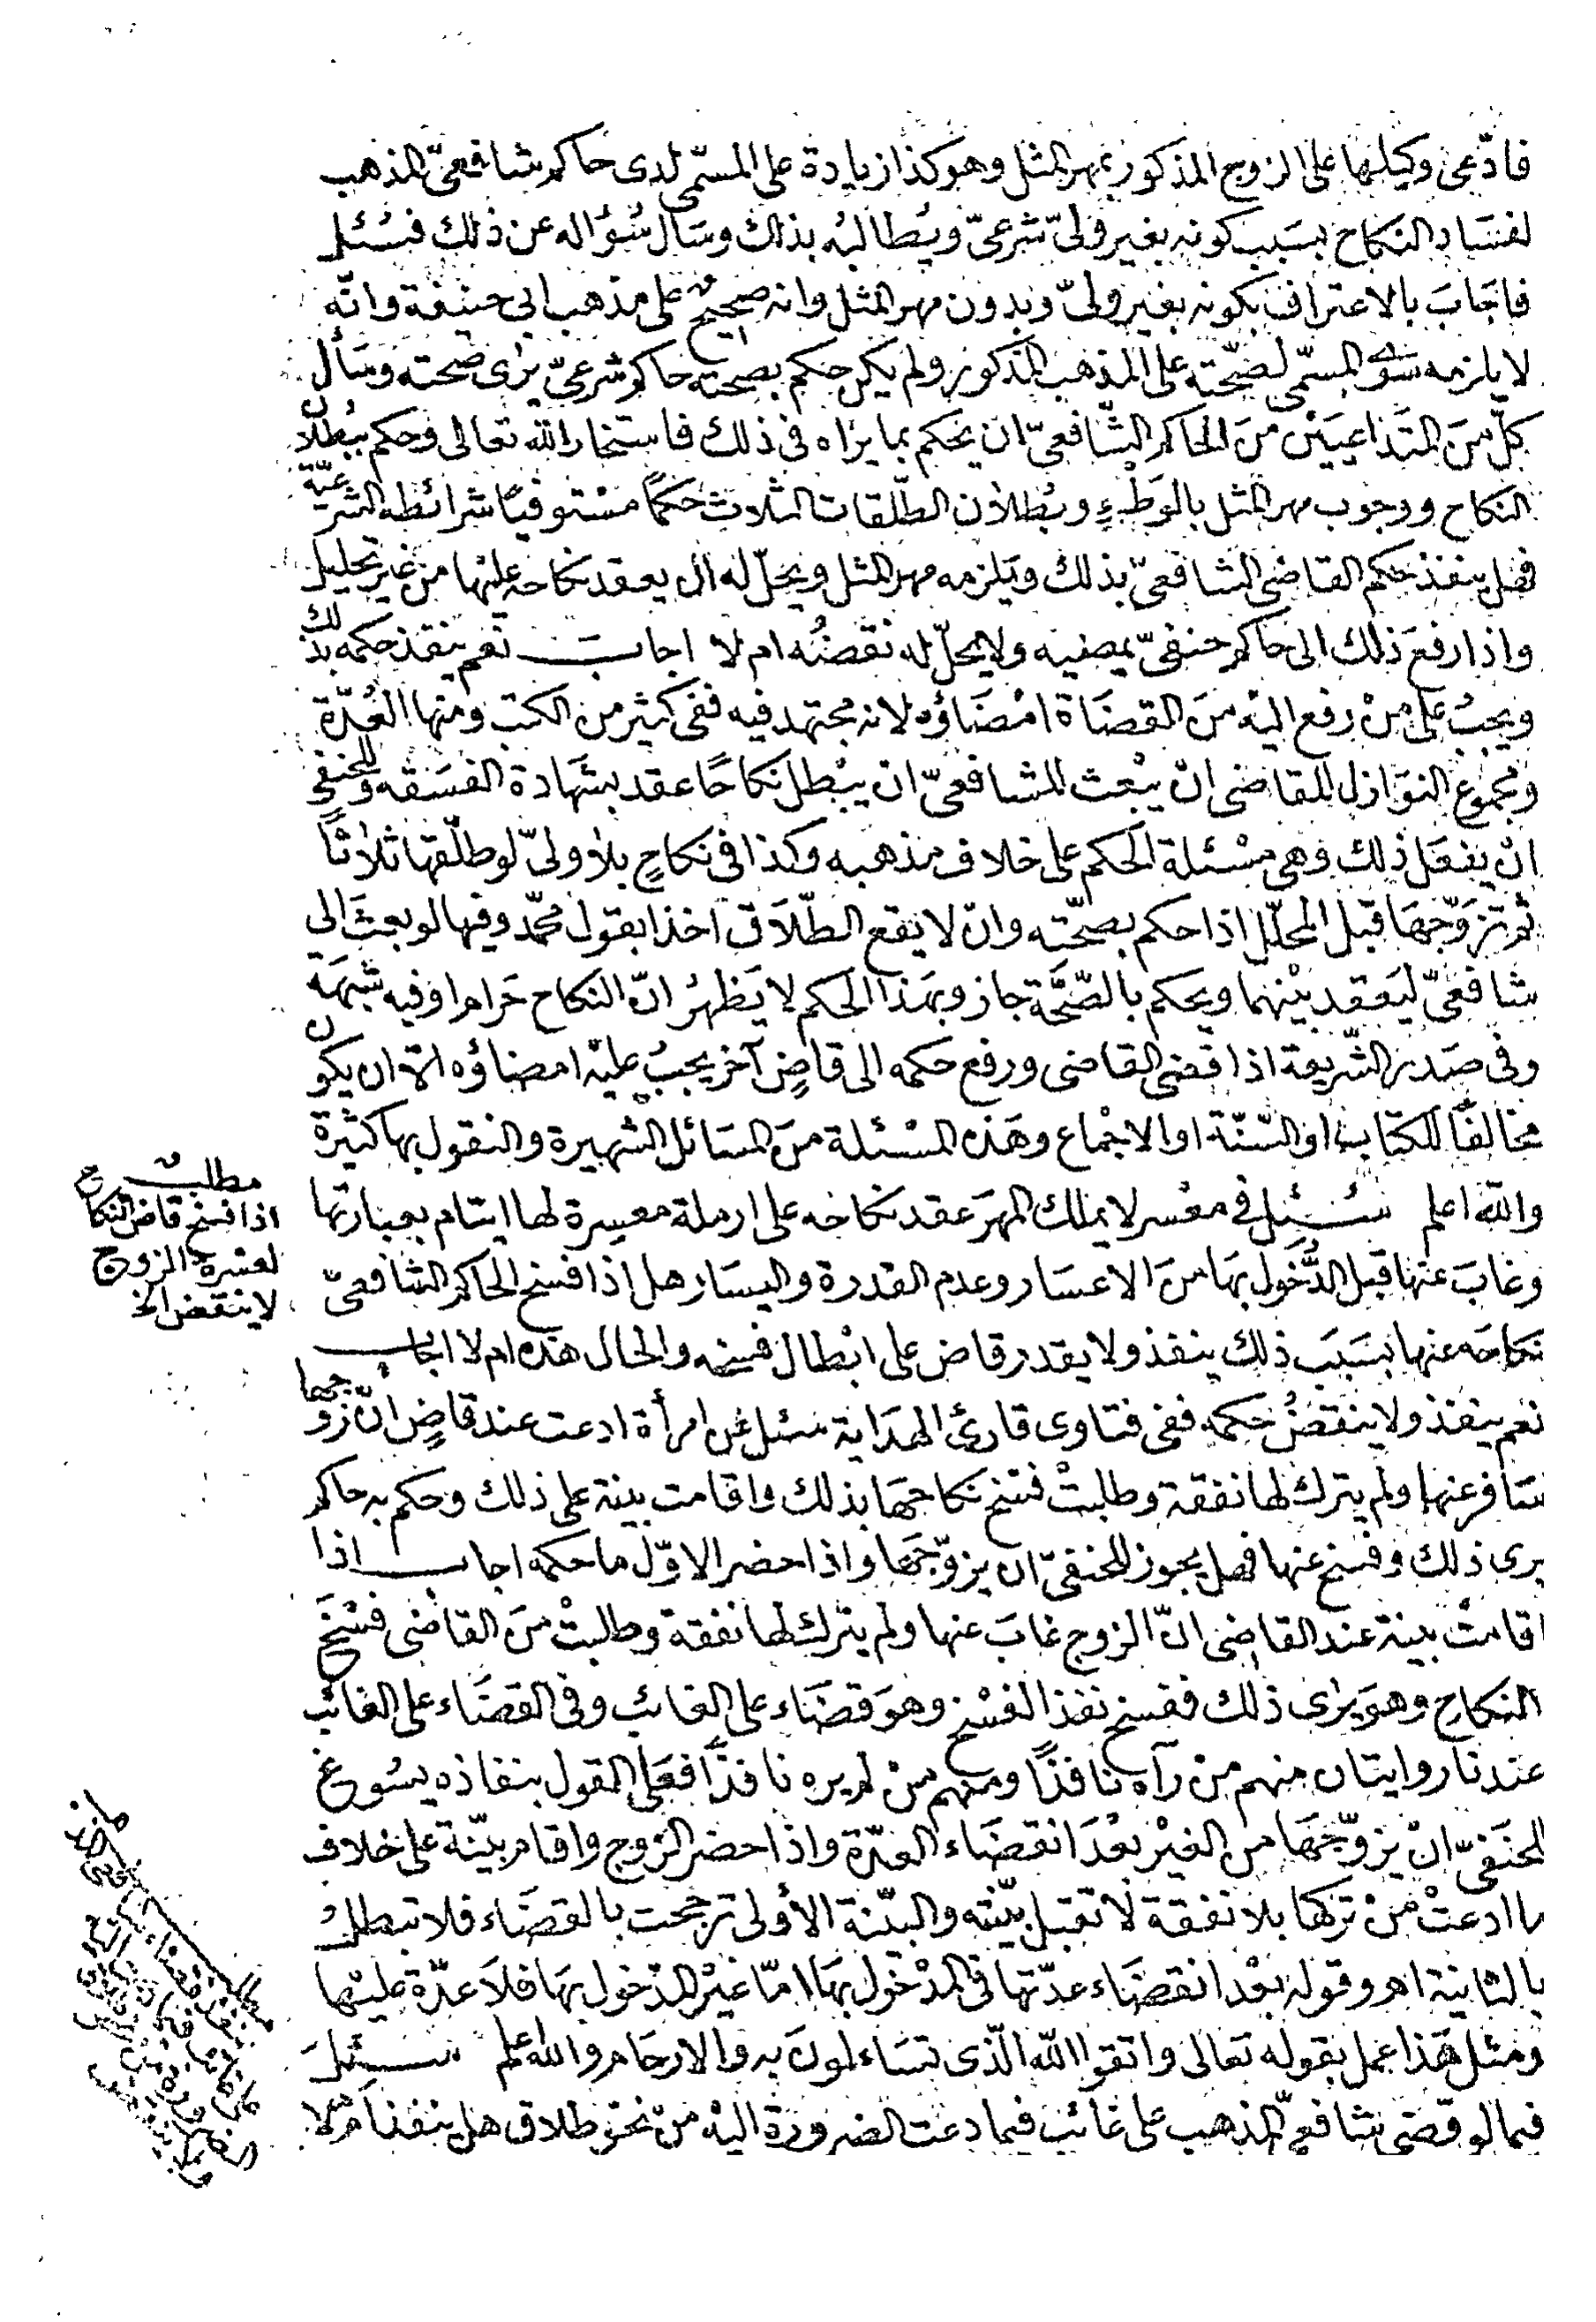 فادّعى وكيلها على الزوج المذكور بمهر المثل وهو كذا زيادة على المسمّى لدى حاكم شافعىّ المذهب
لفسَاد النكاح بسَبب كونه بغير ولىّ شرعىّ ويُطالبُه بذلك وسَأل سُؤاله عن ذلك فسُئل
فاجَابَ بالاعتراف بكونه بغير ولىّ وبدون مهر المثل وانه صحيحٌ على مذهب ابى حنيفة وانّه
لا يلزمه سوَى المسمّى لصحّته على المذهب المذكور ولم يكن حكم بصحته حاكم شرعىّ يرٰى صحته وسَأل
كلّ منَ المتَداعيَيْن منَ الحاكم الشّافعىّ ان يحكم بما يرَاه فى ذلك فاستخار الله تعالى وحكم ببُطلان
النكاح ووجوب مهر المثل بالوَطْءِ وبُطلان الطّلقات الثلاث حكمًا مسْتوفيًا شرائطه الشرعيّة
فهل ينفذ حكم القاضى الشافعىّ بذلك ويَلزمه مهر المثل ويحلّ له ان يعقد نكاحه عليْها من غير تحليل
واذا رفعَ ذلك الى حاكم حنفىّ يمضيه ولا يحلّ له نقضُه ام لا اجابَ نعم ينفذ حكمه بذلك
ويجبُ على منْ رفع اليْه منَ القضَاة امْضَاؤه لانه مجتهد فيه ففى كثير من الكتب ومنها العُدّة
ومجموع النوَازل للقاضى انْ يبْعث للشافعىّ ان يبْطل نكاحًا عقد بشهَادة الفسَقه وللحنفى
انْ يفعَل ذلك وهى مسْئلة الحكم على خلاف مذهبه وكذا فى نكاحٍ بلا ولىّ لو طلّقها ثلاثًا
ثم تزَوّجهَا قبْل المحلّل اذا حكم بصحّته وان لا يقع الطّلاَق اخذا بقول محمّد وفيها لو بعث الى
شافعىّ ليَعقد بيْنهما ويحكم بالصّحَّة جاز وبهَذا الحكم لا يَظهرُ انّ النكاح حَرام او فيه شبهَة
وفى صَدر الشّريعة اذا قضى القاضى ورفع حكمه الى قاضٍ آخر يجبُ عليْه امضاؤه الاّ ان يكون
مخالفًا للكتاب او السّنّة او الاجْماع وهَذه المسْئلة منَ المسَائل الشهيرة والنقول بها كثيرة
والله اعلم سُئِل فى معْسر لا يملك المهرَ عقد نكاحَه على ارملة معسِرة لها ايتام بعبارتها
وغابَ عنها قبل الدُّخول بهَا منَ الاعسَار وعدم القدرة واليسَار هل اذا فسخ الحاكم الشافعىّ
نكاحَه عنها بسَبَب ذلك ينفذ ولا يقدر قاض على ابْطال فسخه والحال هذه ام لا اجاب
نعم ينفذ ولا ينقضُ حكمه ففى فتاوى قارئ الهدَاية سئل عن امرأة ادعت عند قاضٍ انّ زوجها
سَافر عنها ولم يترك لها نفقة وطلبتْ فسْخ نكاحهَا بذلك واقامت بينة على ذلك وحكم به حاكم
يرى ذلك وفسخ عنها فهل يجوز للحنفىّ ان يزوّجهَا واذا حضر الاوّل ما حكمه اجاب اذا
اقامَتْ بينة عند القاضى انّ الزوج غابَ عنها ولم يترك لها نفقة وطلبتْ منَ القاضى فسْخَ
النكاح وهوَ يرٰى ذلك ففسخ نفذ الفسْخ وهوَ قضَاء على الغائب وفى القضَاء على الغائب
عندنا روايتان منهم من رآه نافذًا ومنهم منْ لم يره نافذًا فعَلى القول بنفاذه يسُوغ
للحنَفىّ انْ يزوّجهَا من الغيْر بعْدَ انقضَاء العدّة واذا حضر الزوج واقام بيّنة على خلاف
ما ادعتْ منْ تركها بلا نفقة لا تقبل بيّنته والبيّنة الأولى ترجّحت بالقضَاء فلا تبطل
بالثانية اهـ وقوله بعْد انقضَاء عدّتها فى المدْخول بهَا امّا غيْر المدْخول بهَا فلاَ عدّة عليْها
ومثل هَذا عمل بقوله تعَالى واتقوا الله الّذى تسَاءلونَ به والارحَام والله اعلم سُئِلَ
فيما لو قضَى شافعىّ المذهب على غائب فيما دعت الضرورَة اليْه منْ نحو طلاق هل ينفذ ام لا
مطلب
اذا فسخ قاض النكاح
لعسرة الزوج
لا ينتقض الخ
مطلب